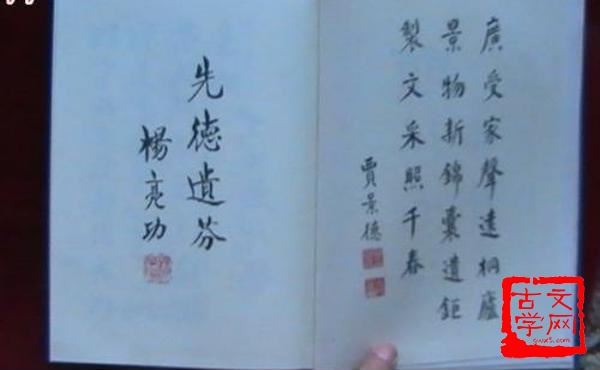 廣受家聲遠桐廬
景物新錦囊遺鉅
製文采照千春
賈景德
先德遺芬
楊亮功
古文学网
gwx5.com